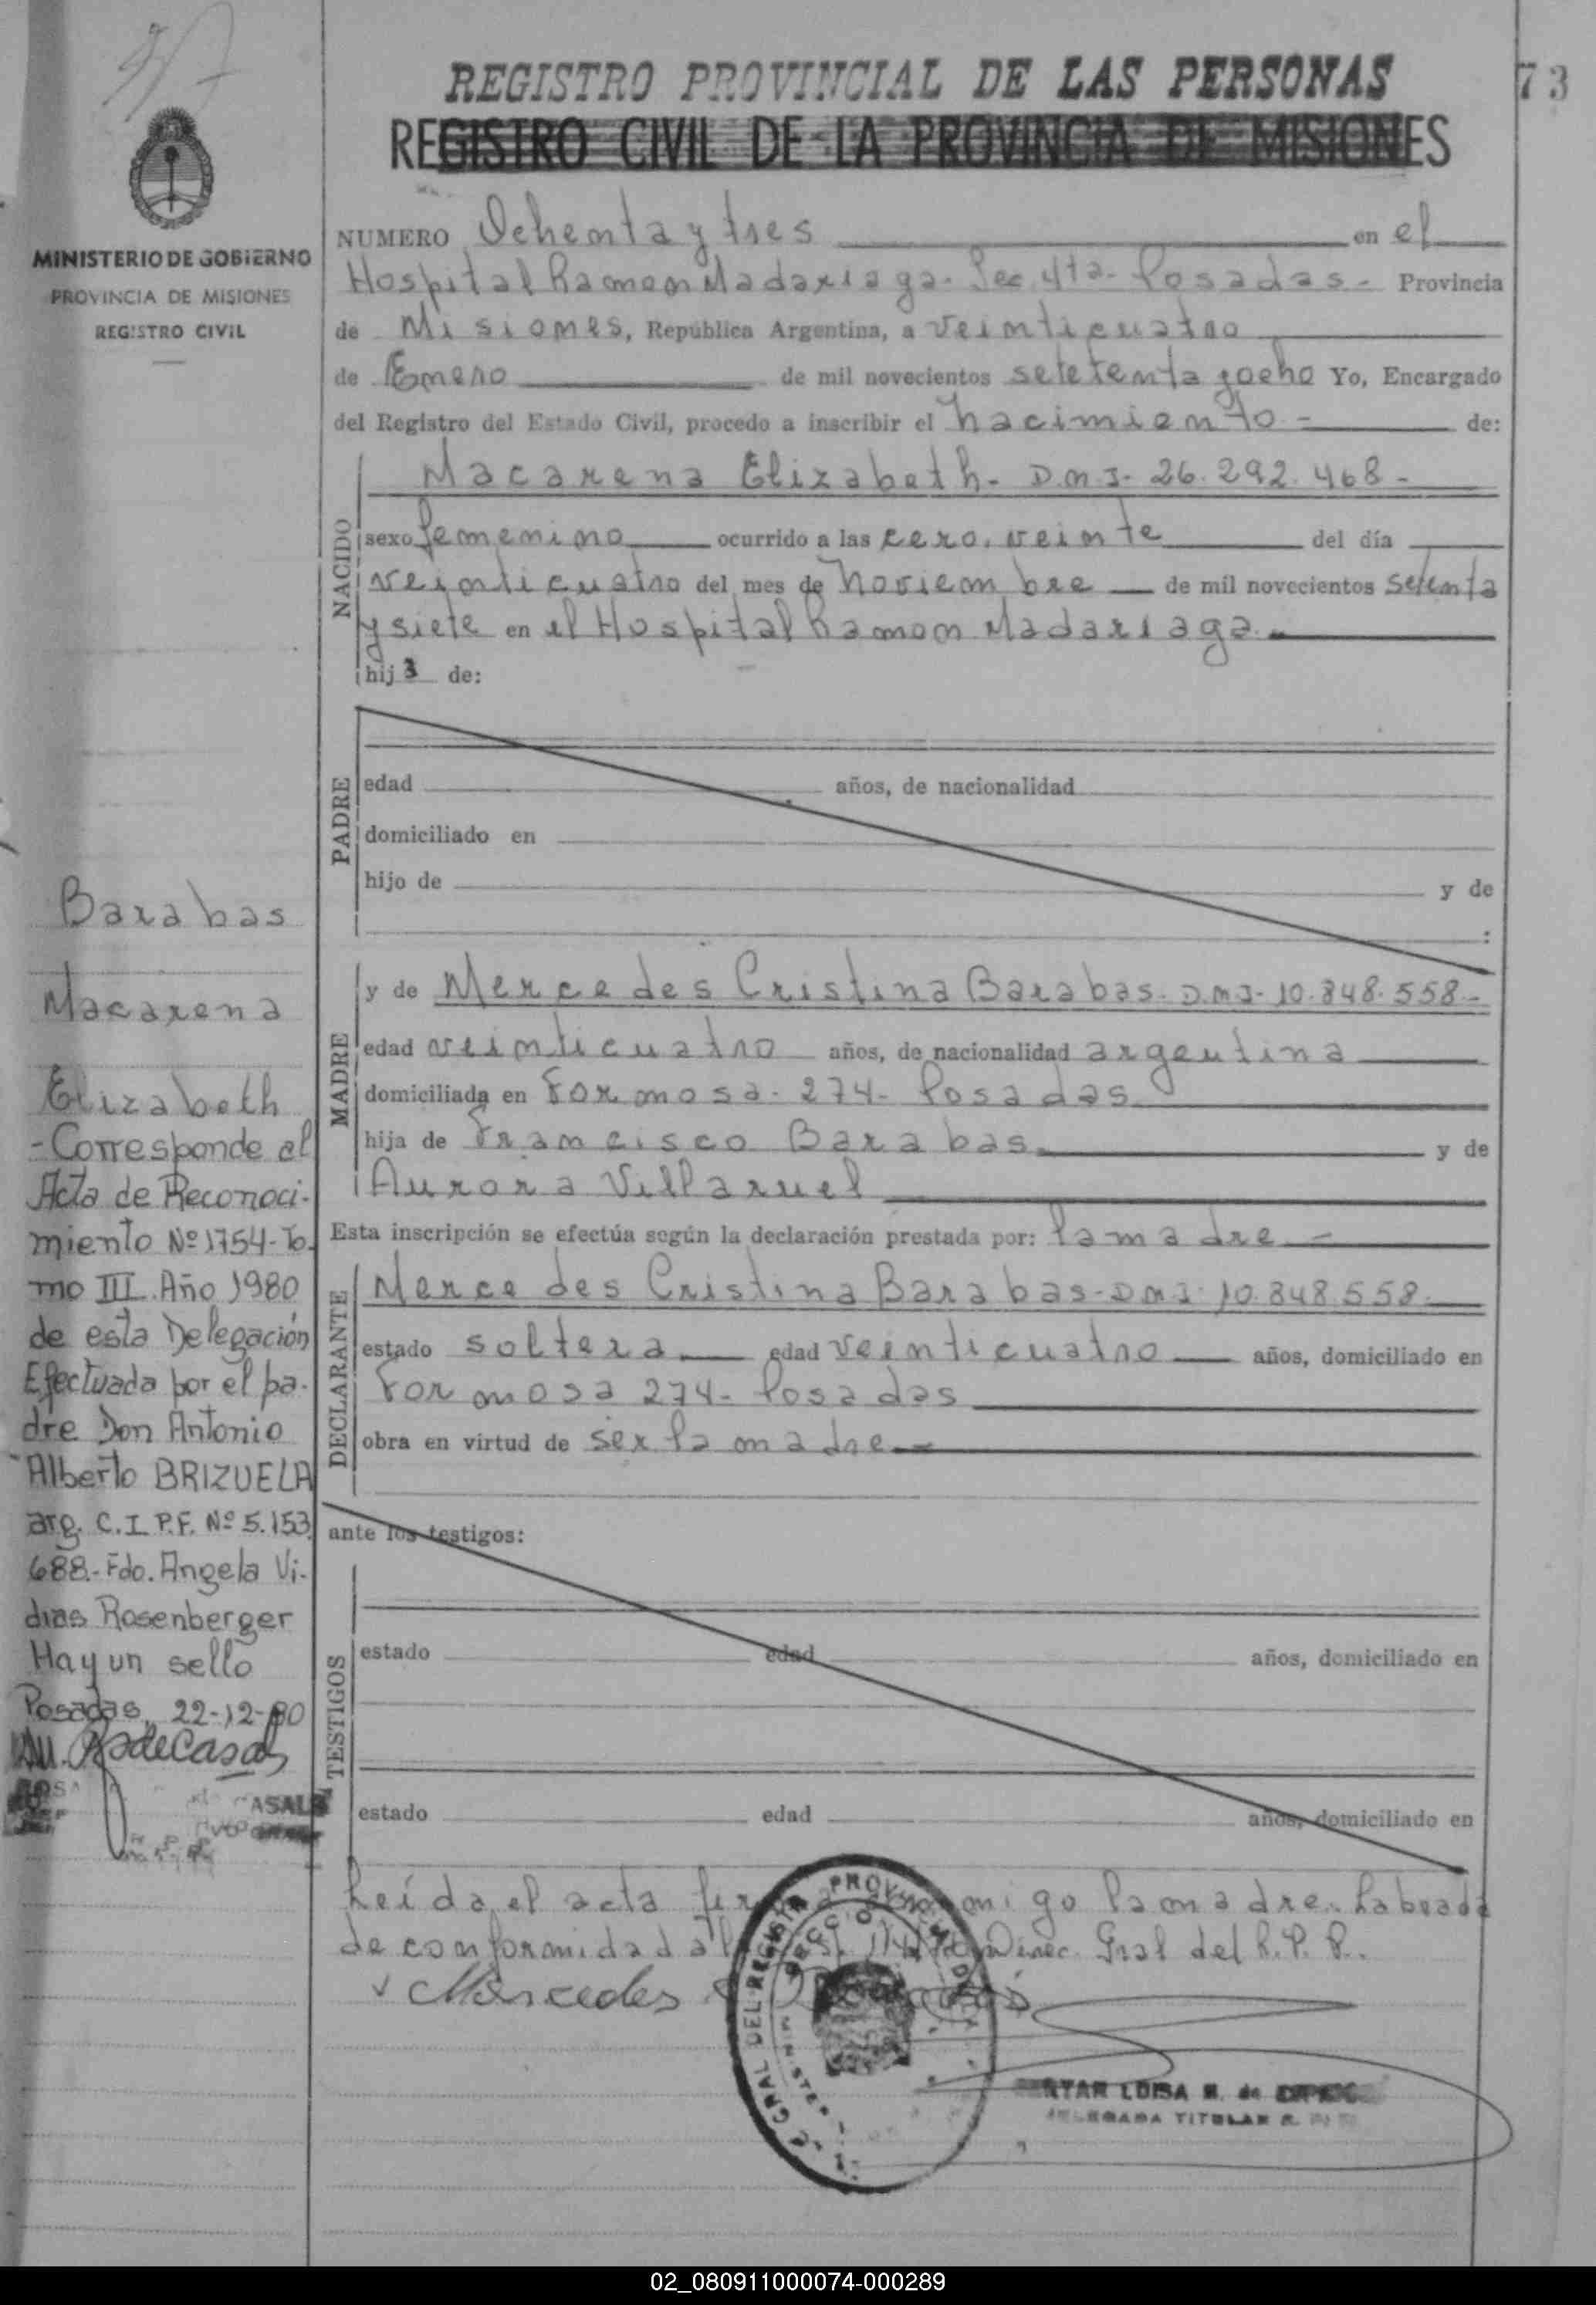 REGISTRO PROVINCIAL DE LAS PERSONAS
73
REGISTRO CIVIL DE LA PROVINCIA DE MISIONES
MINISTERIO DE GOBIERNO
PROVINCIA DE MISIONES
REGISTRO CIVIL
NUMERO Ochenta y tres en el
Hospital Ramon Madariaga. Sec. 4ta. Posadas. Provincia
de Misiones, República Argentina, a veinticuatro
de Enero de mil novecientos setetenta yocho Yo, Encargado
del Registro del Estado Civil, procedo a inscribir el nacimiento de:
NACIDO
Macarena Elizabeth. D.N.I. 26.292.468.
sexo femenino ocurrido a las cero. veinte del día
veinticuatro del mes de Noviembre de mil novecientos setenta
y siete en el Hospital Ramon Madariaga.
hija de:
PADRE
edad años, de nacionalidad
domiciliado en
hijo de y de
:
MADRE
y de Mercedes Cristina Barabas. D.N.I. 10.848.558.
edad veinticuatro años, de nacionalidad argentina
domiciliada en Formosa. 274. Posadas.
hija de Francisco Barabas y de
Aurora Villaruel
Esta inscripción se efectúa según la declaración prestada por: la madre
DECLARANTE
Mercedes Cristina Barabas. D.N.I. 10.848.558.
estado soltera edad veinticuatro años, domiciliado en
Formosa 274. Posadas
obra en virtud de ser la madre
ante los testigos:
TESTIGOS
estado edad años, domiciliado en
estado edad años, domiciliado en
Leída el acta firma conmigo la madre. Labrada
de conformidad al Direc. Gral del R.P.P.
Mercedes
DELEGADA TITULAR
Barabas
Macarena
Elizabeth
-Corresponde al
Acta de Reconoci-
miento Nº 1754-To.
mo III. Año 1980
de esta Delegación
Efectuada por el pa-
dre Don Antonio
Alberto BRIZUELA
arg. C.I P.F. Nº 5.153.
688.- Fdo. Angela Vi-
dias Rosenberger
Hay un sello
Posadas, 22-12-80
02_080911000074-000289